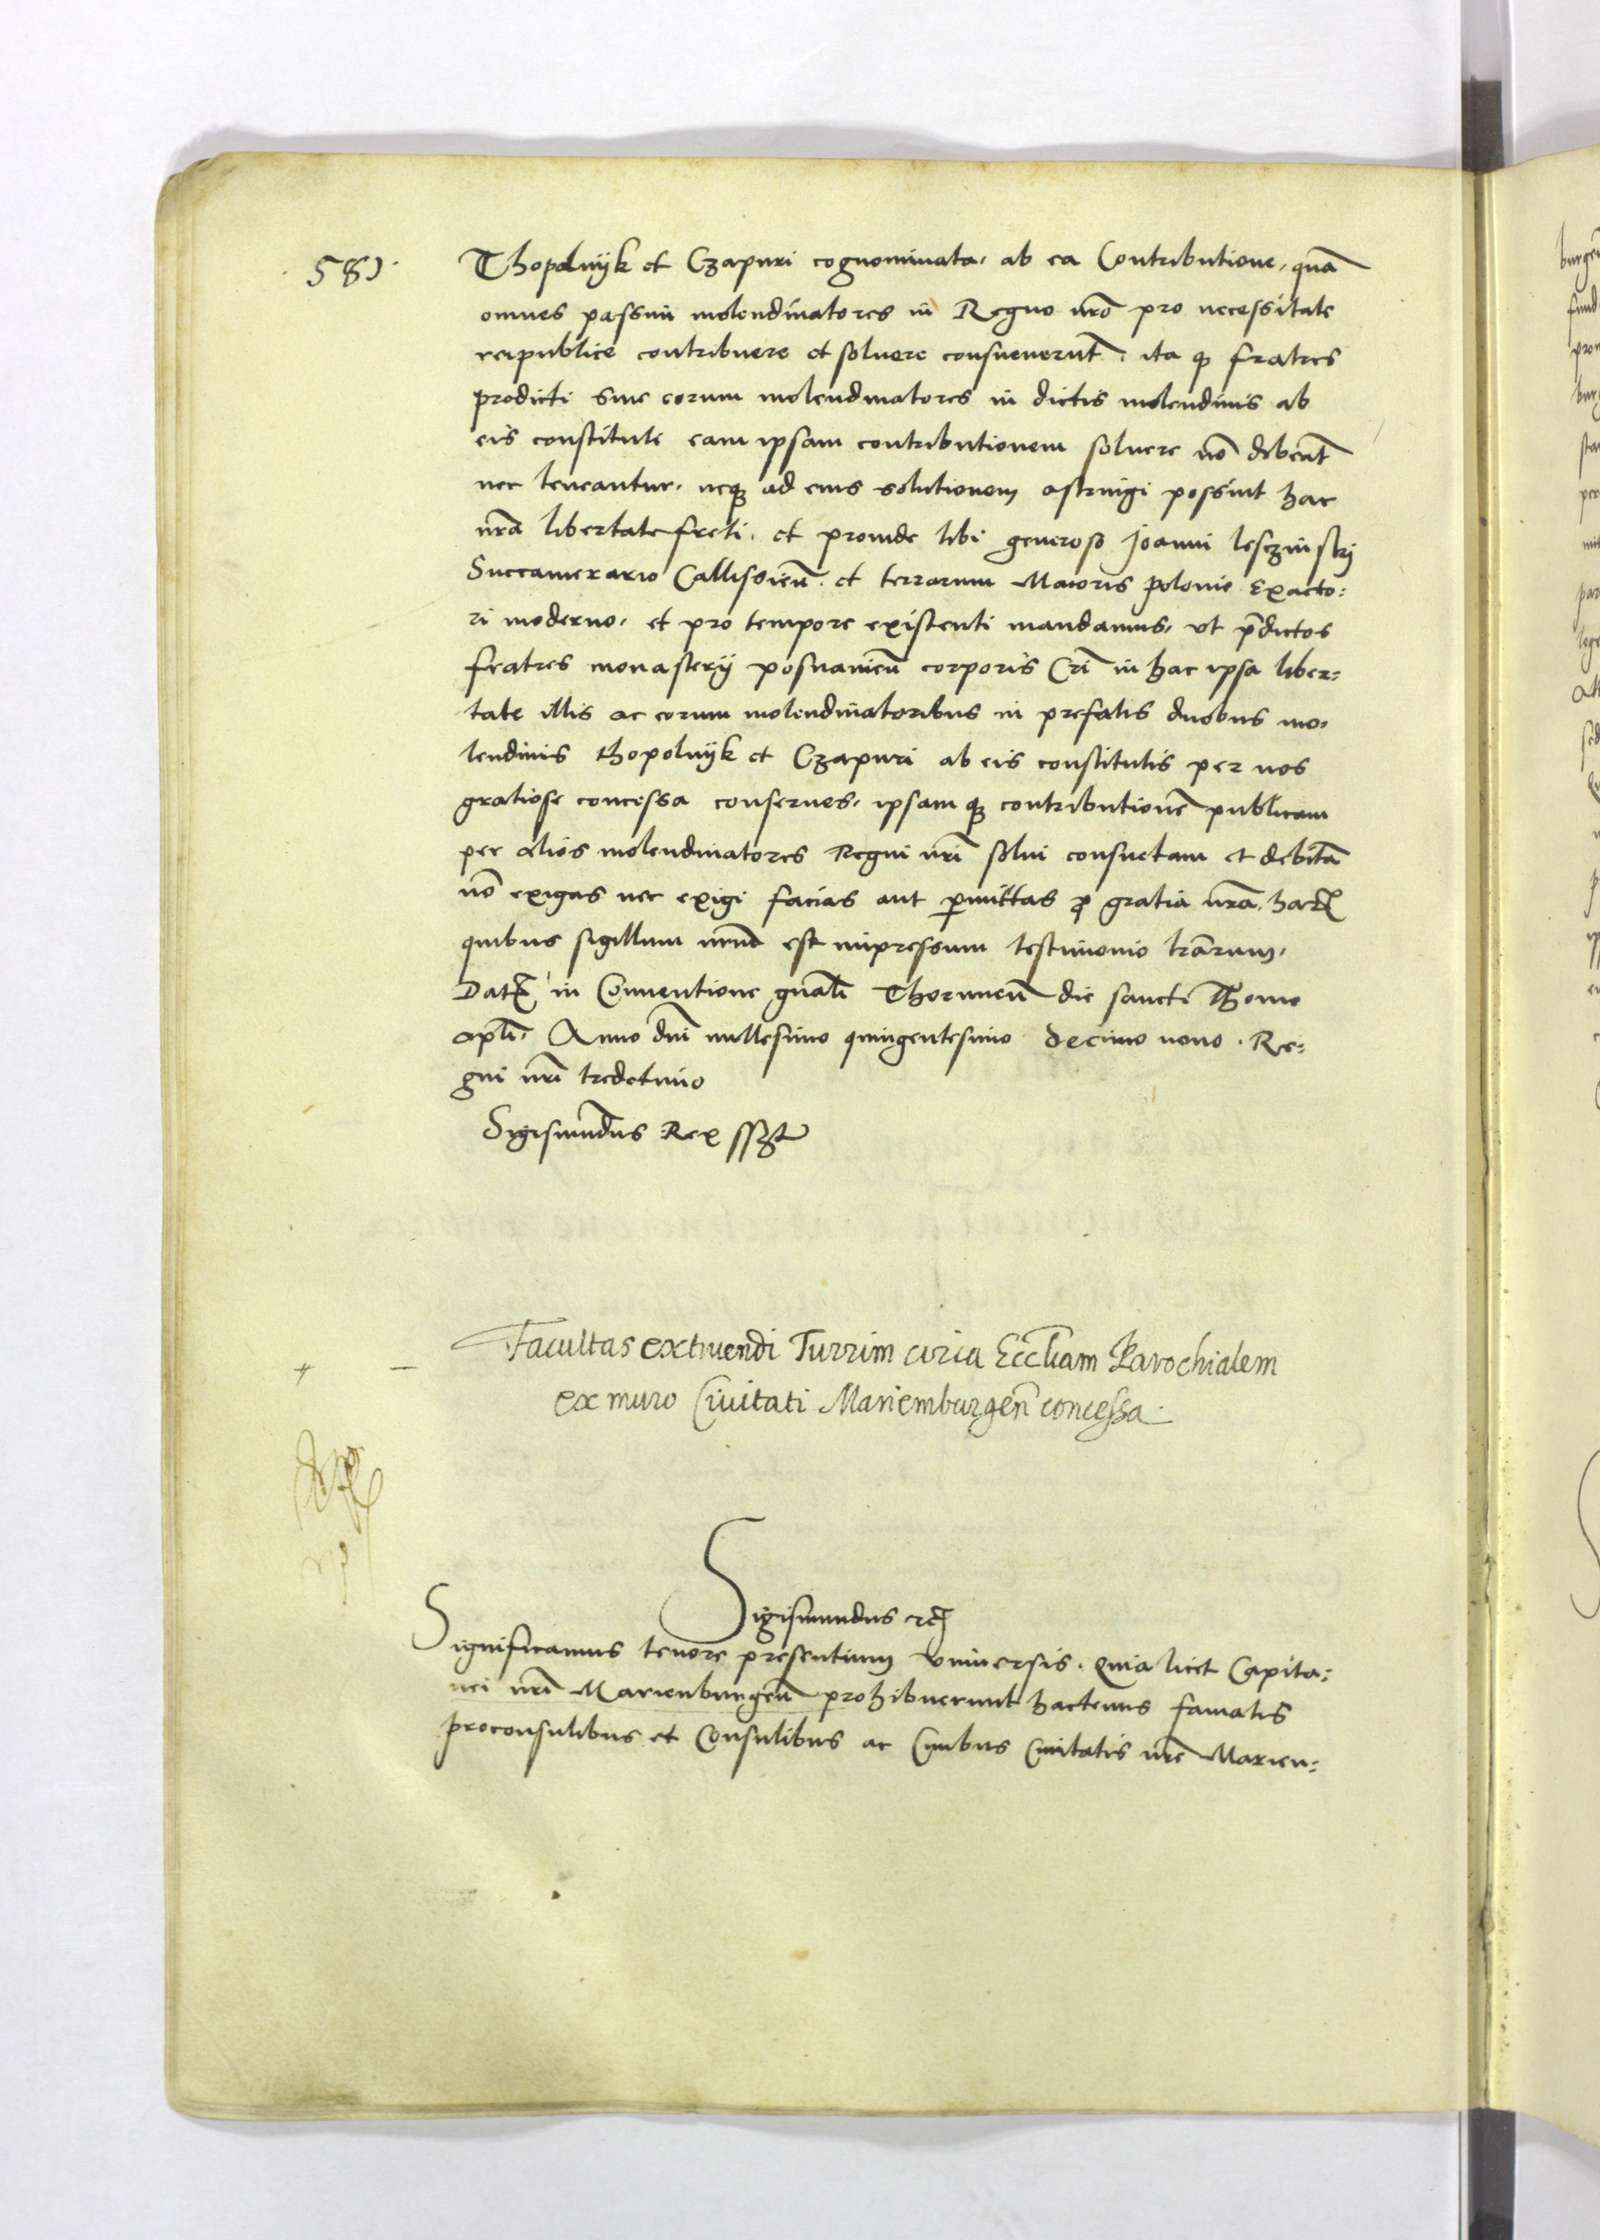 581
Thopolnyk et Czapuri cognominata, ab ea Contributione, quā
omnes passim molendinatores in Regno nr̄o pro necessitate
reipublice contribuere et soluere consueuerūt, ita q fratres
predicti siue eorum molendinatores in dictis molendinis ab
eis constitute eam ipsam contributionem soluere nō debeāt
nec teneantur, neq ad eius solutionem astringi possint hac
nr̄a libertate freti, et proinde tibi generoso Joanni lesczinskj
Succamerario Callissien̄, et terrarum Maioris polonie Exacto:
ri moderno, et pro tempore existenti mandamus, vt p̄dictos
fratres monasterij posnanien̄ corporis Cri̅ in hac ipsa liber:
tate illis ac eorum molendinatoribus in prefatis duobus mo,
lendinis thopolnyk et Czapuri ab eis constitutis per nos
gratiose concessa conserues, ipsam q contributionē publicam
per alios molendinatores Regni nr̄i solui consuetam et debitā
nō exigas nec exigi facias aut p̄mittas p gratia nr̄a, har
quibus sigillum nr̄m est impressum testimonio lr̄arum,
Dat in Conuentione gn̄ali Thorunien̄ die sancti Thome
apl̄i, Anno dn̄i millesimo quingentesimo decimo nono. Re:
gni nr̄i tredecimo
Sigismūdus Rex sszt
Facultas extruendi Turrim circa Eccl̄iam Parochialem
ex muro Ciuitati Mariemburgen̄ concessa.
Sigismundus rc
Significamus tenore presentium vniuersis. Quia licet Capita:
nei nr̄i Marienburgen̄ prohibuerunt hactenus famatis
proconsulibus et Consulibus ac Ciuibus Ciuitatis nr̄e Marien: